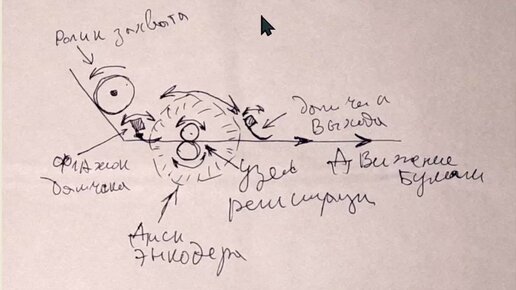 Ролик захвата
датчик
выхода
флажок
датчика
узел
регистрации
Движение
бумаги
Диск
энкодера